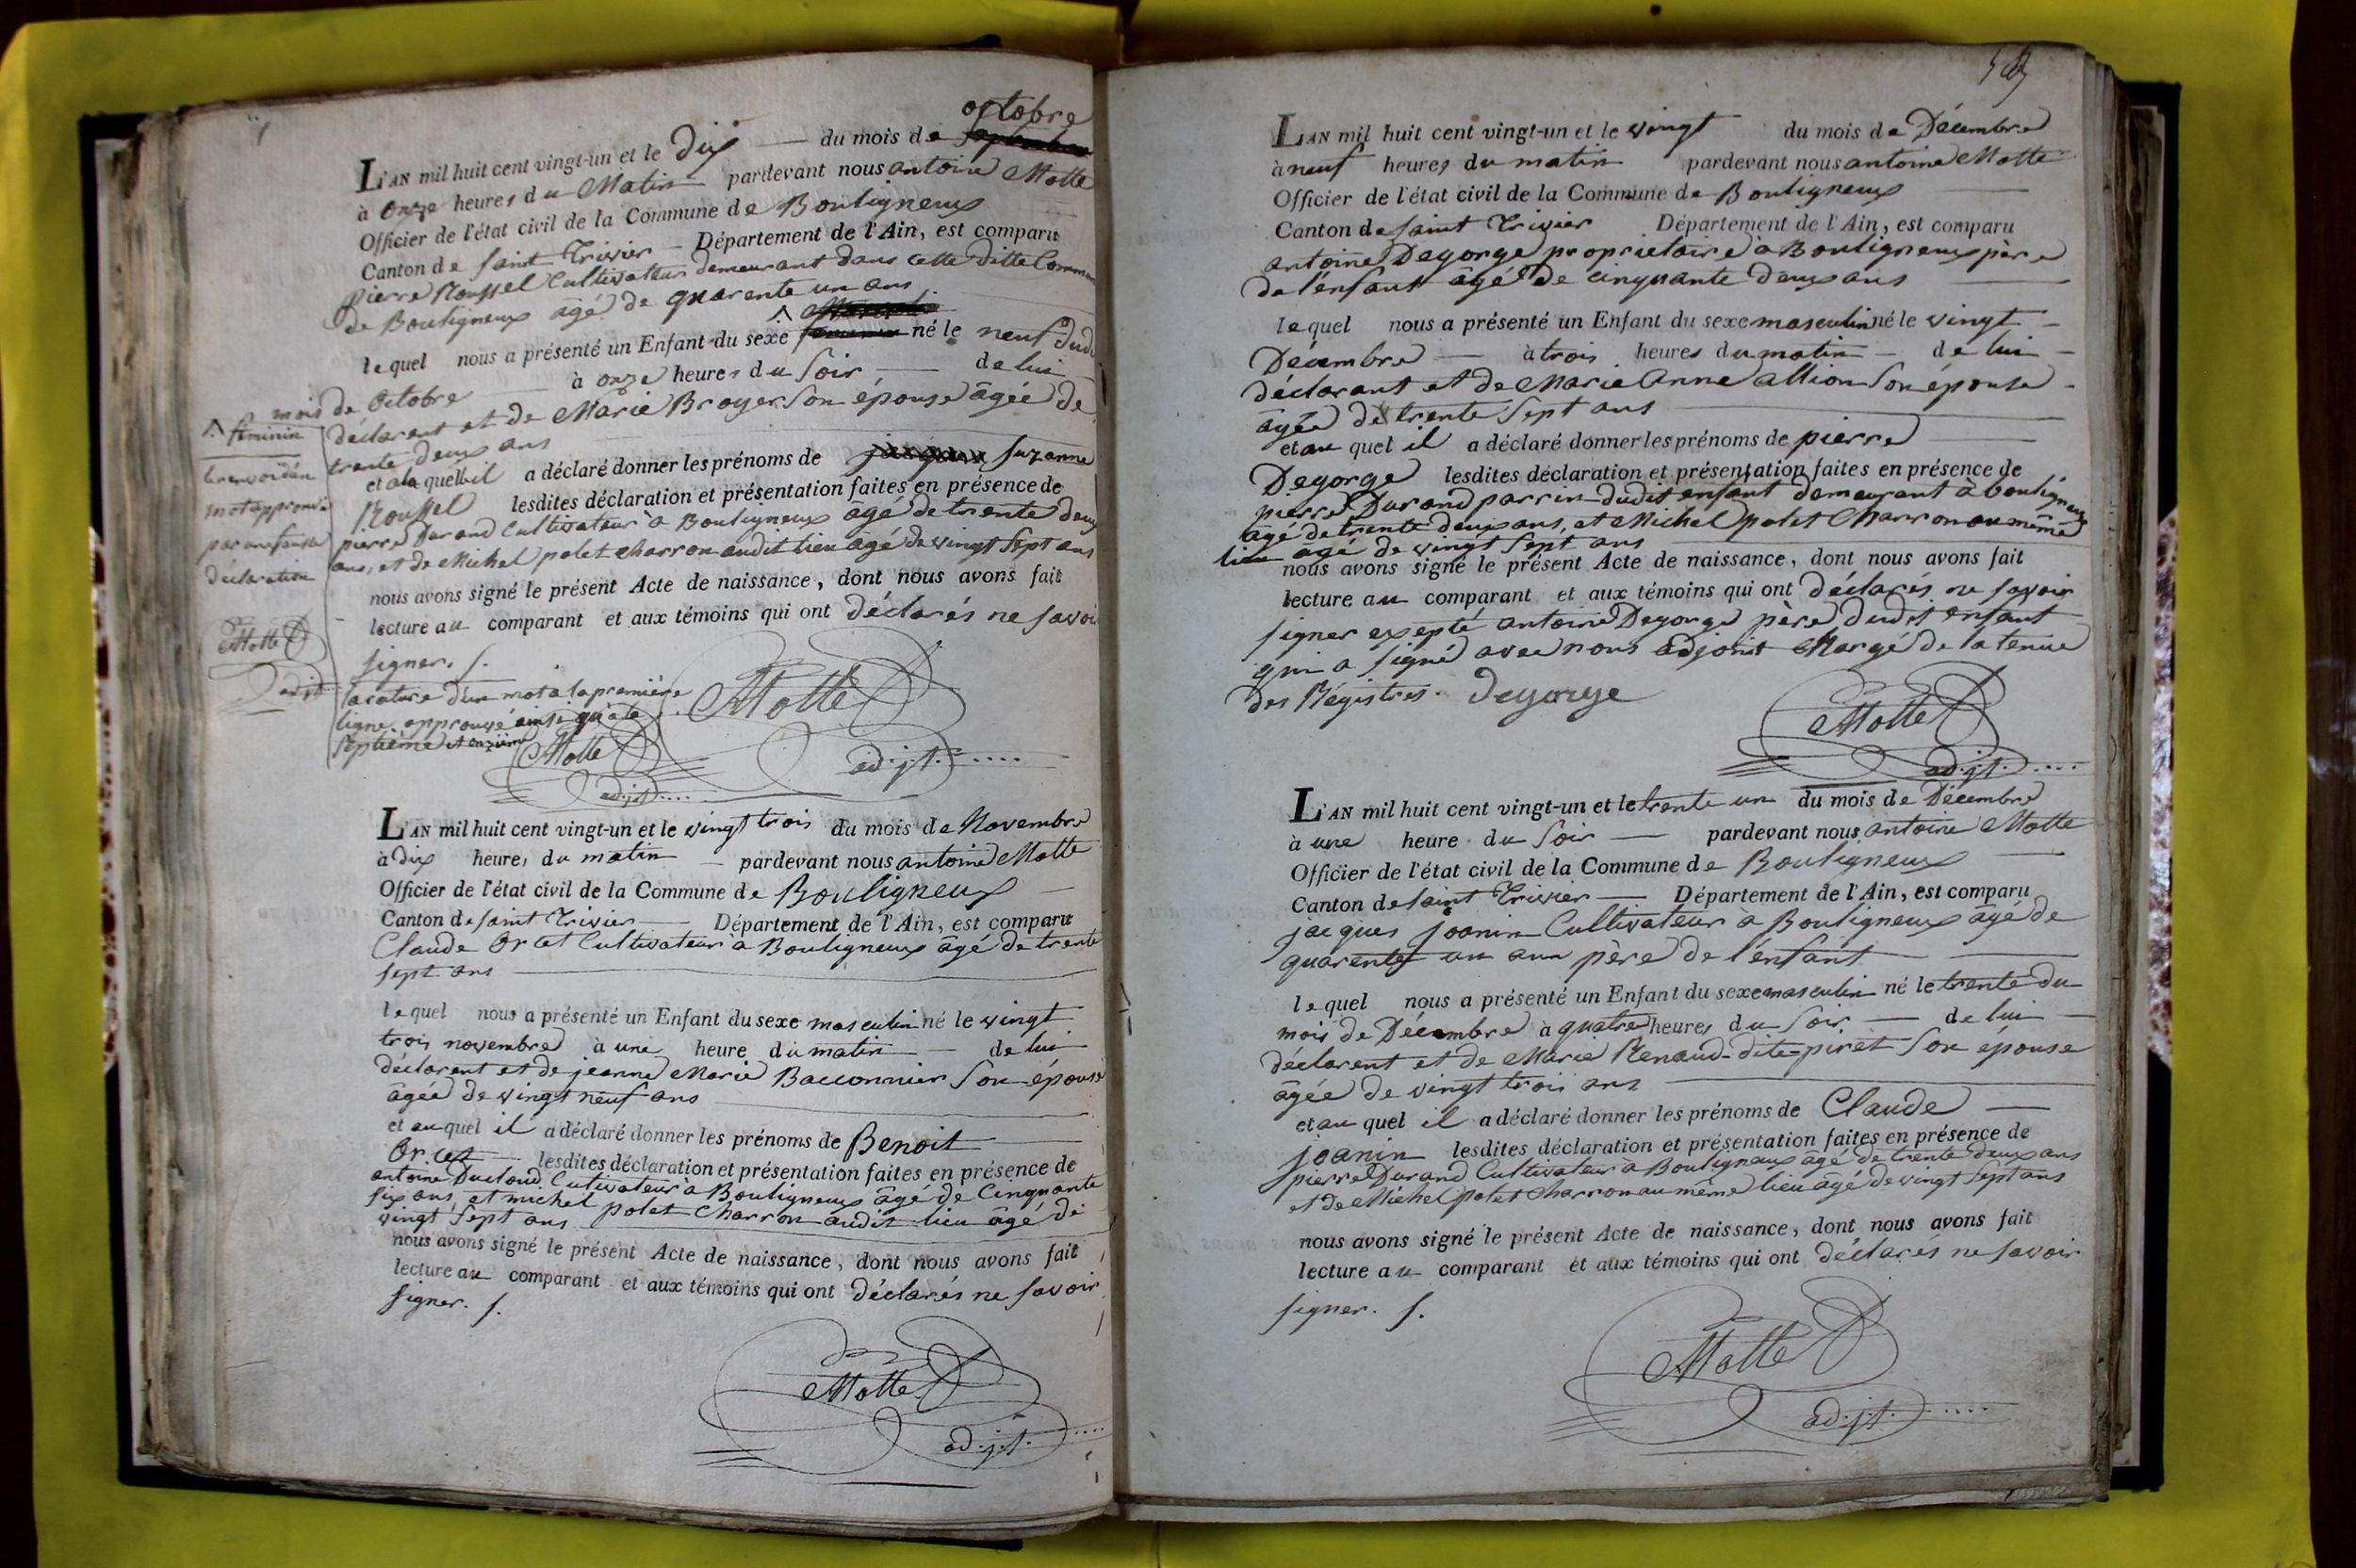 octobre
L'AN mil huit cent vingt-un et le dix du mois de
à onze heures du Matin pardevant nous antoine Motte
Officier de l'état civil de la Commune de Bouligneux
Canton de saint Trivier Département de l'Ain, est comparu
pierre Roussel Cultivateur demeurant dans cette ditte Commune
de Bouligneux âgé de quarente un ans
lequel nous a présenté un Enfant du sexe né le neuf dudit
mois de Octobre à onze heures du soir de lui
déclarant et de Marie Broyer son épouse âgée de
trente deux ans
et a la quelle il a déclaré donner les prénoms de suzanne
Roussel lesdites déclaration et présentation faites en présence de
pierre Durand Cultivateur à Bouligneux âgé de trente deux
ans, et de Michel polet charron audit lieu âgé de vingt sept ans
nous avons signé le présent Acte de naissance, dont nous avons fait
lecture au comparant et aux témoins qui ont déclarés ne savoir
signer. /.
féminin
mot approuvé
par une fausse
déclaration
Motte
adjt
la rature d'un mot a la première
ligne approuvé ainsi qu'a la
septième et onzième
Motte
adjt....
Motte
adjt.....
L'AN mil huit cent vingt-un et le vingt trois du mois de Novembre
à dix heures du matin pardevant nous antoine Motte
Officier de l'état civil de la Commune de Bouligneux
Canton de saint Trivier Département de l'Ain, est comparu
Claude Orcet Cultivateur à Bouligneux âgé de trente
sept ans
lequel nous a présenté un Enfant du sexe masculin né le vingt
trois novembre à une heure du matin de lui
déclarent et de jeanne Marie Bacconnier son épouse
âgée de vingt neuf ans
et au quel il a déclaré donner les prénoms de Benoit
Orcet lesdites déclaration et présentation faites en présence de
antoine Ducloud Cultivateur à Bouligneux âgé de Cinquante
six ans, et michel polet Charron audit lieu âgé de
vingt sept ans
nous avons signé le présent Acte de naissance, dont nous avons fait
lecture au comparant et aux témoins qui ont déclarés ne savoir
signer. /.
Motte
adjt.....
L'AN mil huit cent vingt-un et le vingt du mois de Décembre
à neuf heures du matin pardevant nous antoine Motte
Officier de l'état civil de la Commune de Bouligneux
Canton de saint Trivier Département de l'Ain, est comparu
antoine Degorge proprietaire à Bouligneux père
de l'enfant âgé de cinquante deux ans
lequel nous a présenté un Enfant du sexe masculin né le vingt
Décembre à trois heures du matin de lui
déclarant et de Marie Anne Allion son épouse
âgée de trente sept ans
et au quel il a déclaré donner les prénoms de pierre
Degorge lesdites déclaration et présentation faites en présence de
pierre Durand parrin dudit enfant demeurant à bouligneux
âgé de trente deux ans, et Michel polet Charron au même
lieu âgé de vingt sept ans
nous avons signé le présent Acte de naissance, dont nous avons fait
lecture au comparant et aux témoins qui ont déclarés ne savoir
signer exepté antoine Degorge père dudit enfant
qui a signé avec nous adjoint Chargé de la tenue
des Régistres. degorge
Motte
adjt.....
L'AN mil huit cent vingt-un et le trente un du mois de Décembre
à une heure du soir pardevant nous antoine Motte
Officier de l'état civil de la Commune de Bouligneux
Canton de saint Trivier Département de l'Ain, est comparu
jacques joanin Cultivateur a Bouligneux âgé de
quarente un ann père de l'énfant
lequel nous a présenté un Enfant du sexe masculin né le trente du
mois de Décembre à quatre heures du soir de lui
déclarent et de Marie Renaud-dite-piret son épouse
âgée de vingt trois ans
et au quel il a déclaré donner les prénoms de Claude
joanin lesdites déclaration et présentation faites en présence de
pierre Durand Cultivateur à Bouligneux âgé de trente deux ans
et de Michel polet charron au même lieu âgé de vingt sept ans
nous avons signé le présent Acte de naissance, dont nous avons fait
lecture au comparant et aux témoins qui ont déclarés ne savoir
signer. /.
Motte
adjt.....